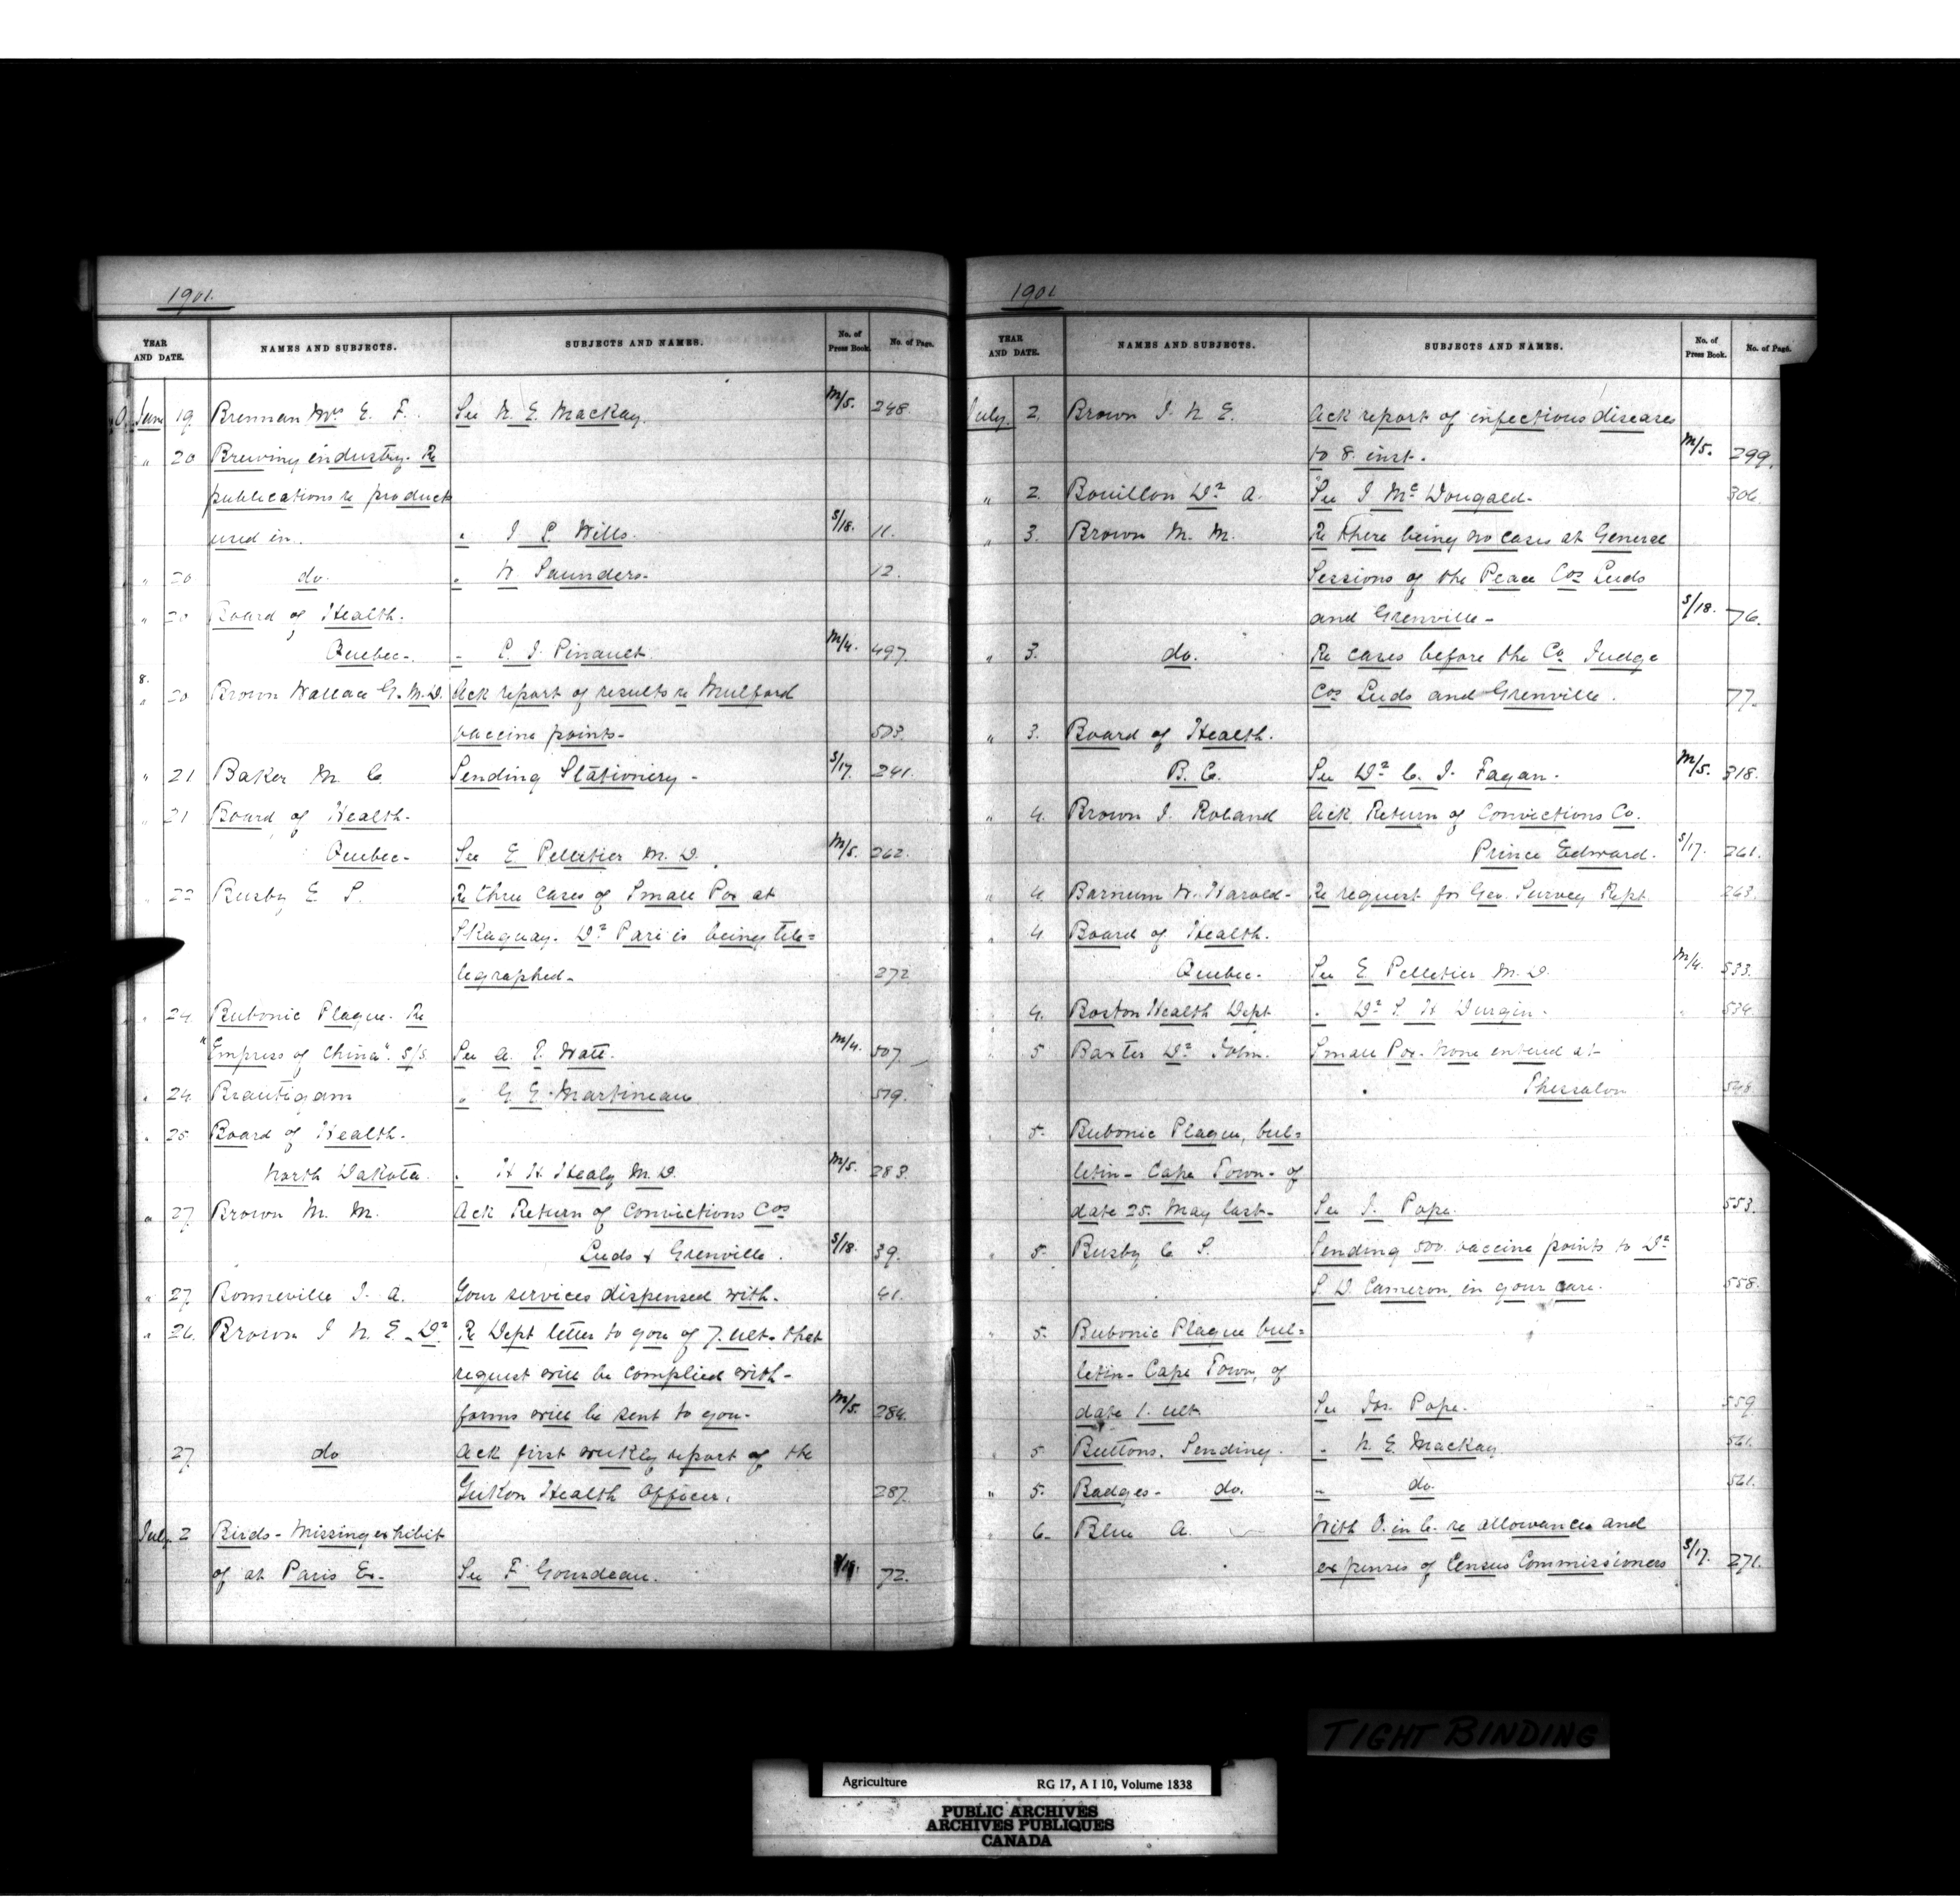 1901.
YEAR AND DATE. NAMES AND SUBJECTS. SUBJECTS AND NAMES. No. of Press Book. No. of Page.
June 19 Brennan Mrs E. F. See N. E. Mackay. M/5. 248.
" 20 Brewing industry. Re
publications re products
used in. " J. P. Wills. S/18. 11.
" 20 do. " W Saunders. 12.
" 20 Board of Health.
Quebec. " P. J. Pinault. M/4. 497.
" 20 Brown Wallace G. M.D. Ack report of results re Mulford
vaccine points. 503.
" 21 Baker M. C. Sending Stationery - S/17. 241.
" 21 Board of Health.
Quebec. See E Pelletier M. D. M/5. 262.
" 22 Busby E S. Re three cases of Small Pox at
Skaguay. Dr Paré is being tele=
legraphed. 272
" 24 Bubonic Plague. Re
"Empress of China". S/S. See A. T. Watt. M/4. 507.
" 24 Brautigam " G E Martineau 519.
" 25 Board of Health.
North Dakota. " H H Healy M. D. M/5. 283.
" 27 Brown M. M. Ack Return of Convictions Cos
Leeds & Grenville. S/18. 39.
" 27. Bonneville J. A. Your services dispensed with. 41.
" 26. Brown J N. E. Dr Re Dept letter to you of 7. ult. that
request will be complied with -
forms will be sent to you. M/5. 284.
27. do Ack first weekly report of the
Yukon Health Officer. 287.
July 2 Birds - Missing exhibit
of at Paris Ex. See F Gourdeau. 72.
1901
YEAR AND DATE. NAMES AND SUBJECTS. SUBJECTS AND NAMES. No. of Press Book. No. of Page.
July. 2. Brown J. N. E. Ack report of infectious diseases
to 8. inst. M/5. 299.
" 2. Bouillon Dr A. See J McDougald. 306.
" 3. Brown M. M. Re there being no cases at General
Sessions of the Peace Cos Leeds
and Grenville - S/18. 76.
" 3. do. Re cases before the Co Judge
Cos Leeds and Grenville. 77.
" 3. Board of Health.
B. C. See Dr C. J. Fagan. M/5. 318.
" 4. Brown J. Roland Ack Return of Convictions Co.
Prince Edward. S/17. 261.
" 4. Barnum W. Harold - Re request for Geo. Survey Rept. 263.
" 4. Board of Health.
Quebec. See E. Pelletier M. D. M/4. 533.
4. Boston Health Dept " Dr S. H Durgin. 534.
5 Baxter Dr John. Small Pox. None entered at
Thessalon 548.
5. Bubonic Plague, bul=
letin - Cape Town - of
date 25. May last. See J. Pope. 553.
" 5. Busby E S. Sending 500 vaccine points to Dr
S D. Cameron, in your care. 558.
" 5. Bubonic Plague bul=
letin - Cape Town, of
date 1. ult. See Jos. Pope. 559
" 5 Buttons. Sending. " N. E. Mackay. 561.
" 5. Badges - do. " do. 561.
" 6. Blue A. With O. in C. re allowances and
expenses of Census Commissioners S/17. 271.
TIGHT BINDING
Agriculture RG 17, A I 10, Volume 1838
PUBLIC ARCHIVES
ARCHIVES PUBLIQUES
CANADA